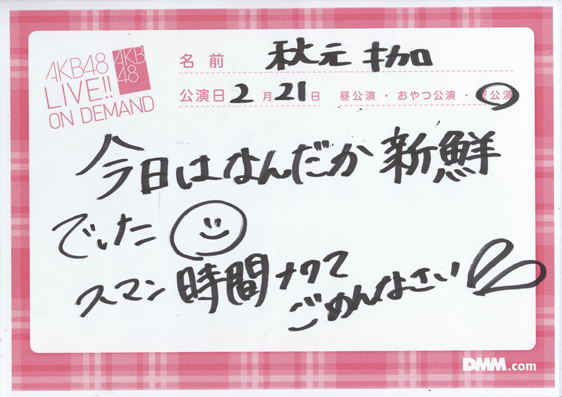 AKB48
LIVE!!
ON DEMAND
AKB
48
名前 秋元才加
公演日 2月21日 昼公演・おやつ公演・夜公演
今日はなんだか新鮮
でした
スマン時間ナクて
ごめんなさい
DMM.com